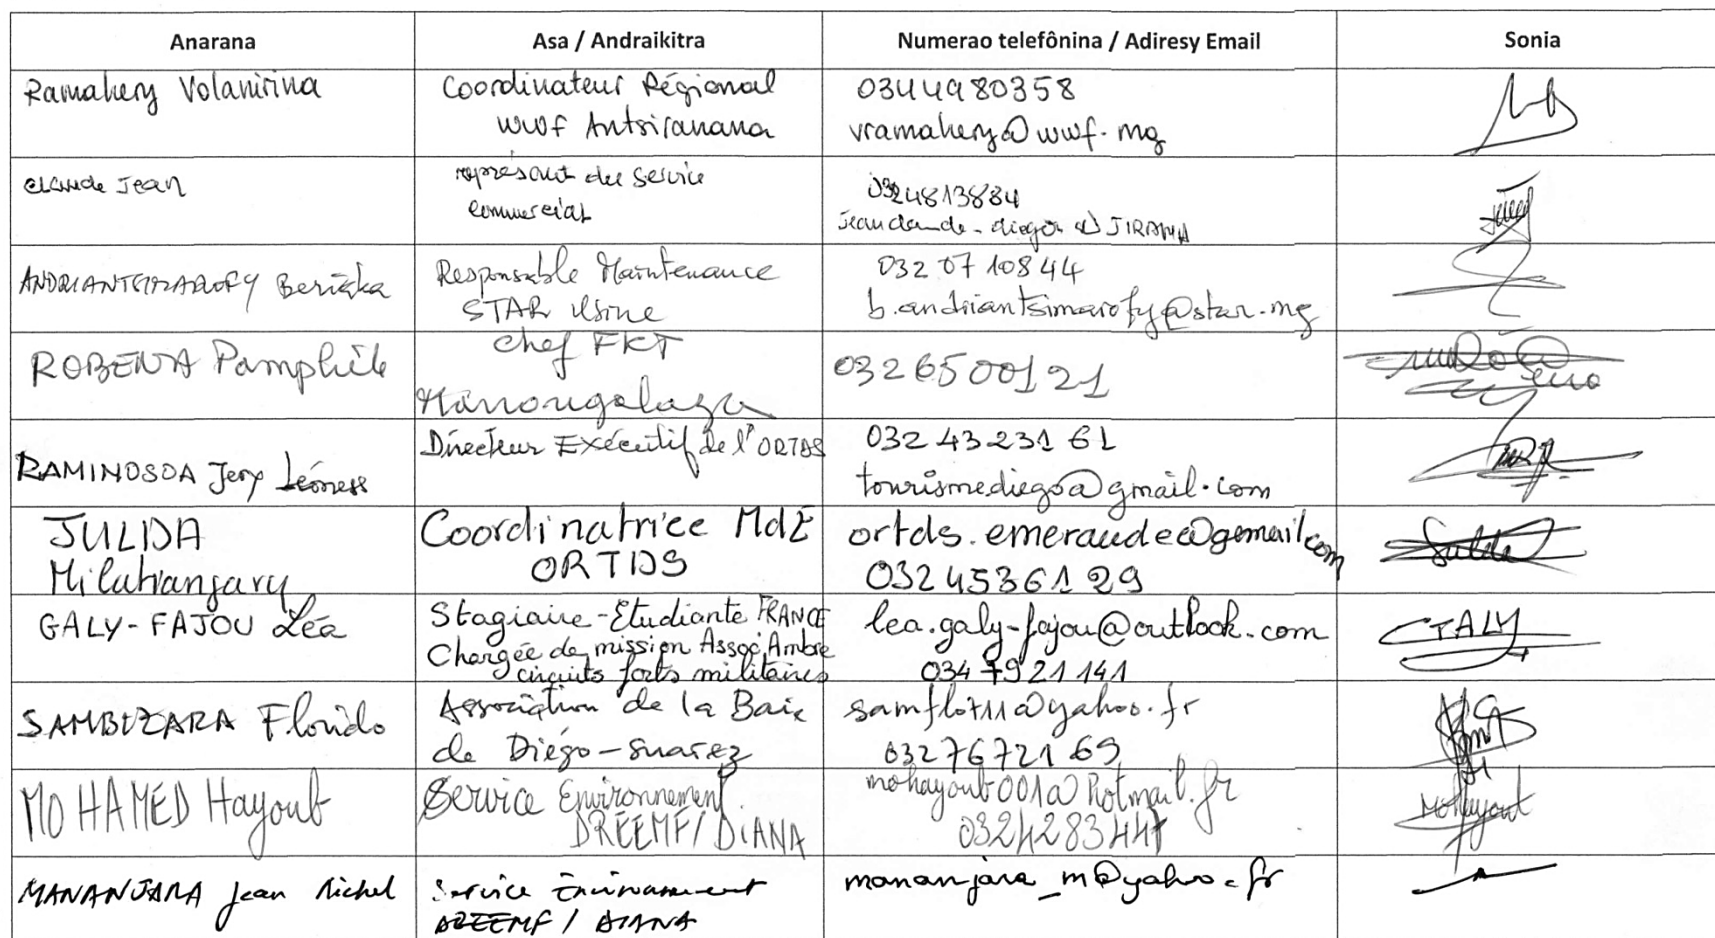 Anarana
Asa / Andraikitra
Numerao telefônina / Adiresy Email
Sonia
Ramahery Volanirina
Coordinateur Régional
WWF Antsiranana
0344980358
vramahery@wwf.mg
Claude Jean
représant du service
commercial
0324813884
JIRAMA
Beriaka
Responsable Maintenance
STAR Usine
032 07 108 44
b.andriantsimarofy@star.mg
ROBENA Pamphile
Chef FKT
0326500121
RAMINOSOA Jery Léoness
Directeur Exécutif de l'ORTDS
032 43 231 61
tourismediego@gmail.com
JULIDA
Coordinatrice MdE
ORTDS
ortds.emeraude@gemail.com
0324536129
GALY-FAJOU Léa
Stagiaire-Etudiante FRANCE
Chargée de mission Assoc Ambre
circuits forts militaires
lea.galy-fajou@outlook.com
034 79 21 141
GALY
SAMBIZARA Florido
Association de la Baie
de Diégo-Suarez
032 76 721 69
MOHAMED Hayoub
Service Environnement
DREEMF/DIANA
mohayoub001@hotmail.fr
Mohayoub
MANANJARA Jean Michel
Service Environnement
DREEMF / DIANA
mananjara_m@yahoo.fr